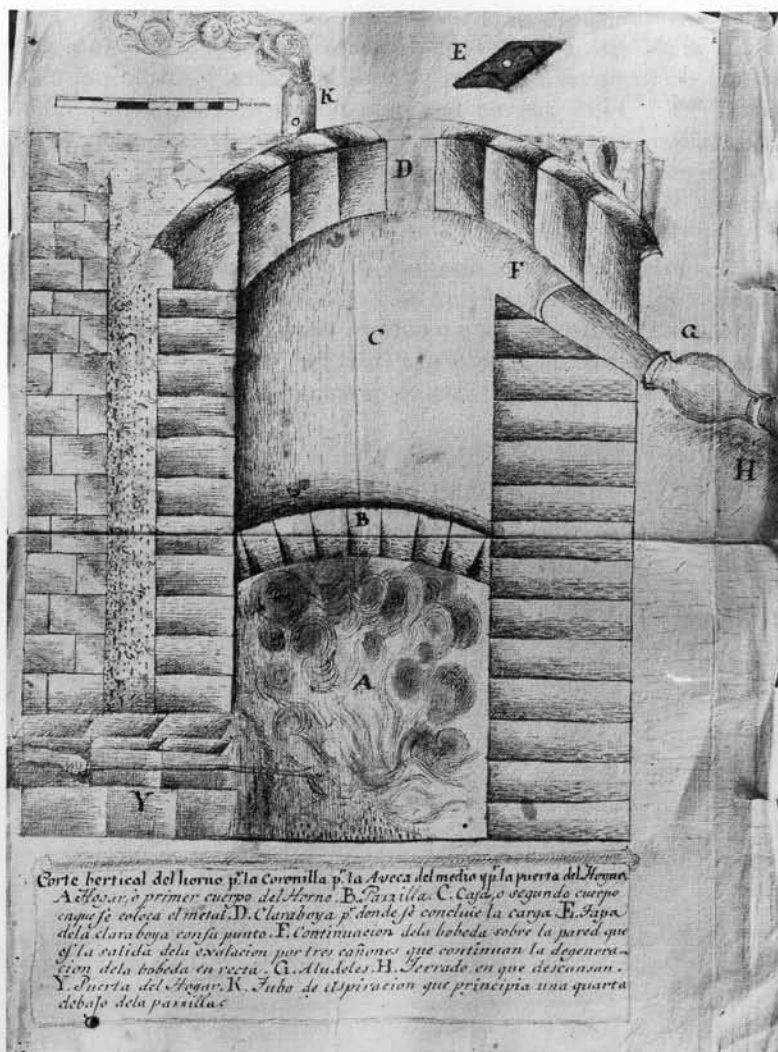 K
E
D
F
C
G
H
B
A
Y
Corte bertical del horno pr. la Coronilla pr. la Aveca del medio y pr. la puerta del Hogar.
A Hogar, o primer cuerpo del Horno. B. Parrilla. C. Caja, o segundo cuerpo
enque se coloca el metal. D. Claraboya pr. donde se concluie la carga. E. Tapa
dela claraboya consu punto. F. Continuacion dela bobeda sobre la pared que
es la salida dela exalacion por tres cañones que continuan la degenera-
cion dela bobeda en recta. G. Aludeles. H. Terrado en que descansan.
Y. Puerta del Hogar. K. Tubo de aspiracion que principia una quarta
debajo dela parrilla